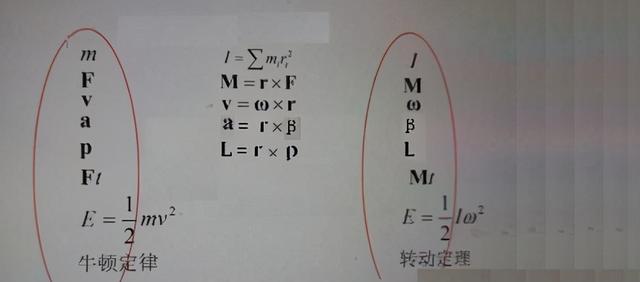 m
F
v
a
p
Ft
E = 1/2 mv²
牛顿定律
I = ∑ mᵢrᵢ²
M = r × F
v = ω × r
a = r × β
L = r × p
I
M
ω
β
L
Mt
E = 1/2 Iω²
转动定理